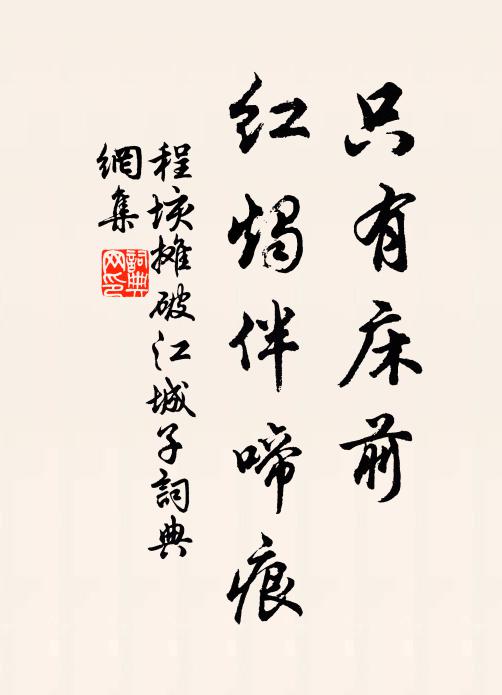 只有床前
红烛伴啼痕
程垓摊破江城子詞典
網集
詞典
网印